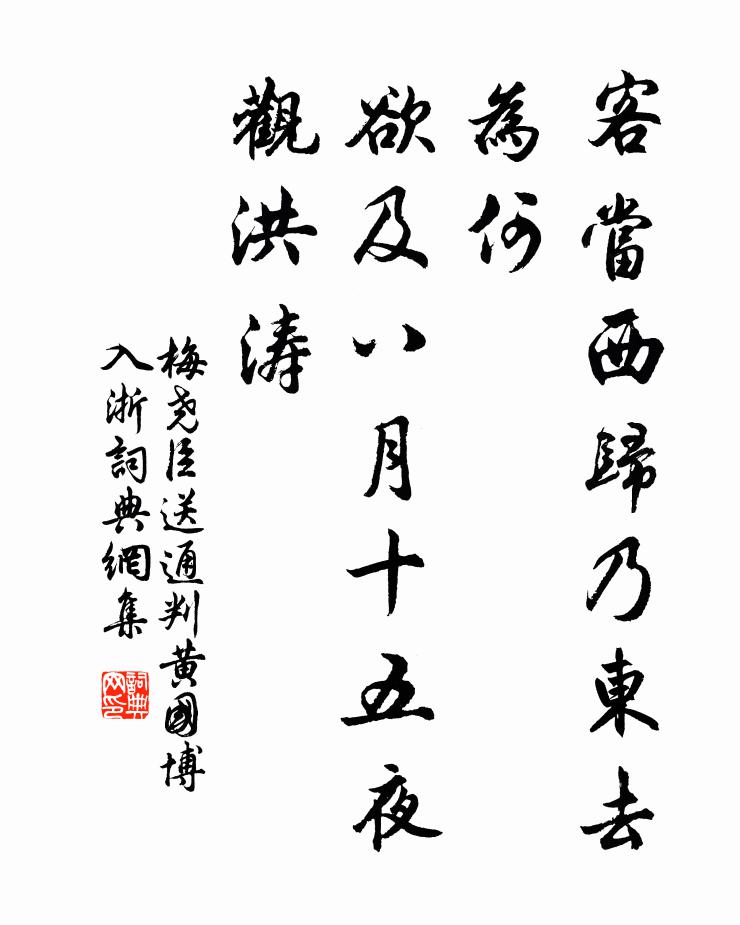 客當西歸乃東去
為何
欲及八月十五夜
觀洪濤
梅堯臣送通判黄國博
入浙詞典網集
詞典网印